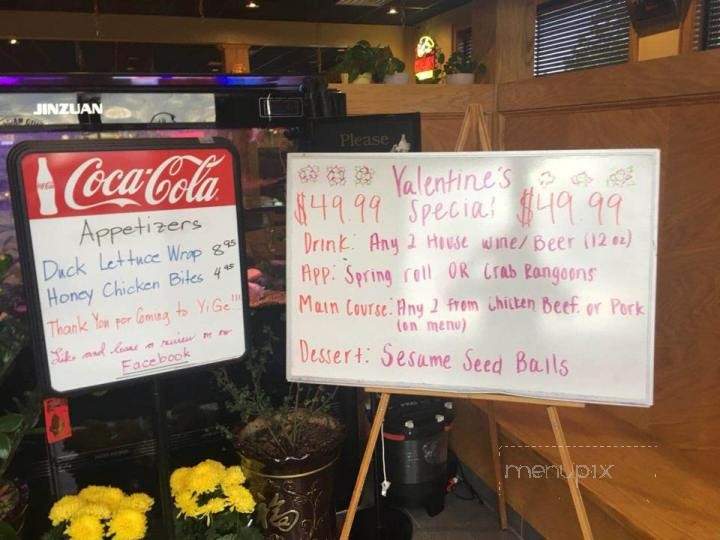 JINZUAN
Please
Coca-Cola
Appetizers
Duck Lettuce Wrap 8 95
Honey Chicken Bites 4 95
Thank You por Coming to YiGe!!!
Like and leave a review on our
Facebook
Valentine's
$49.99 Special $49.99
Drink: Any 2 House wine/Beer (12 oz)
App: Spring roll OR Crab Rangoons
Main Course: Any 2 from Chicken Beef. or Pork
(on menu)
Dessert: Sesame Seed Balls
menupix